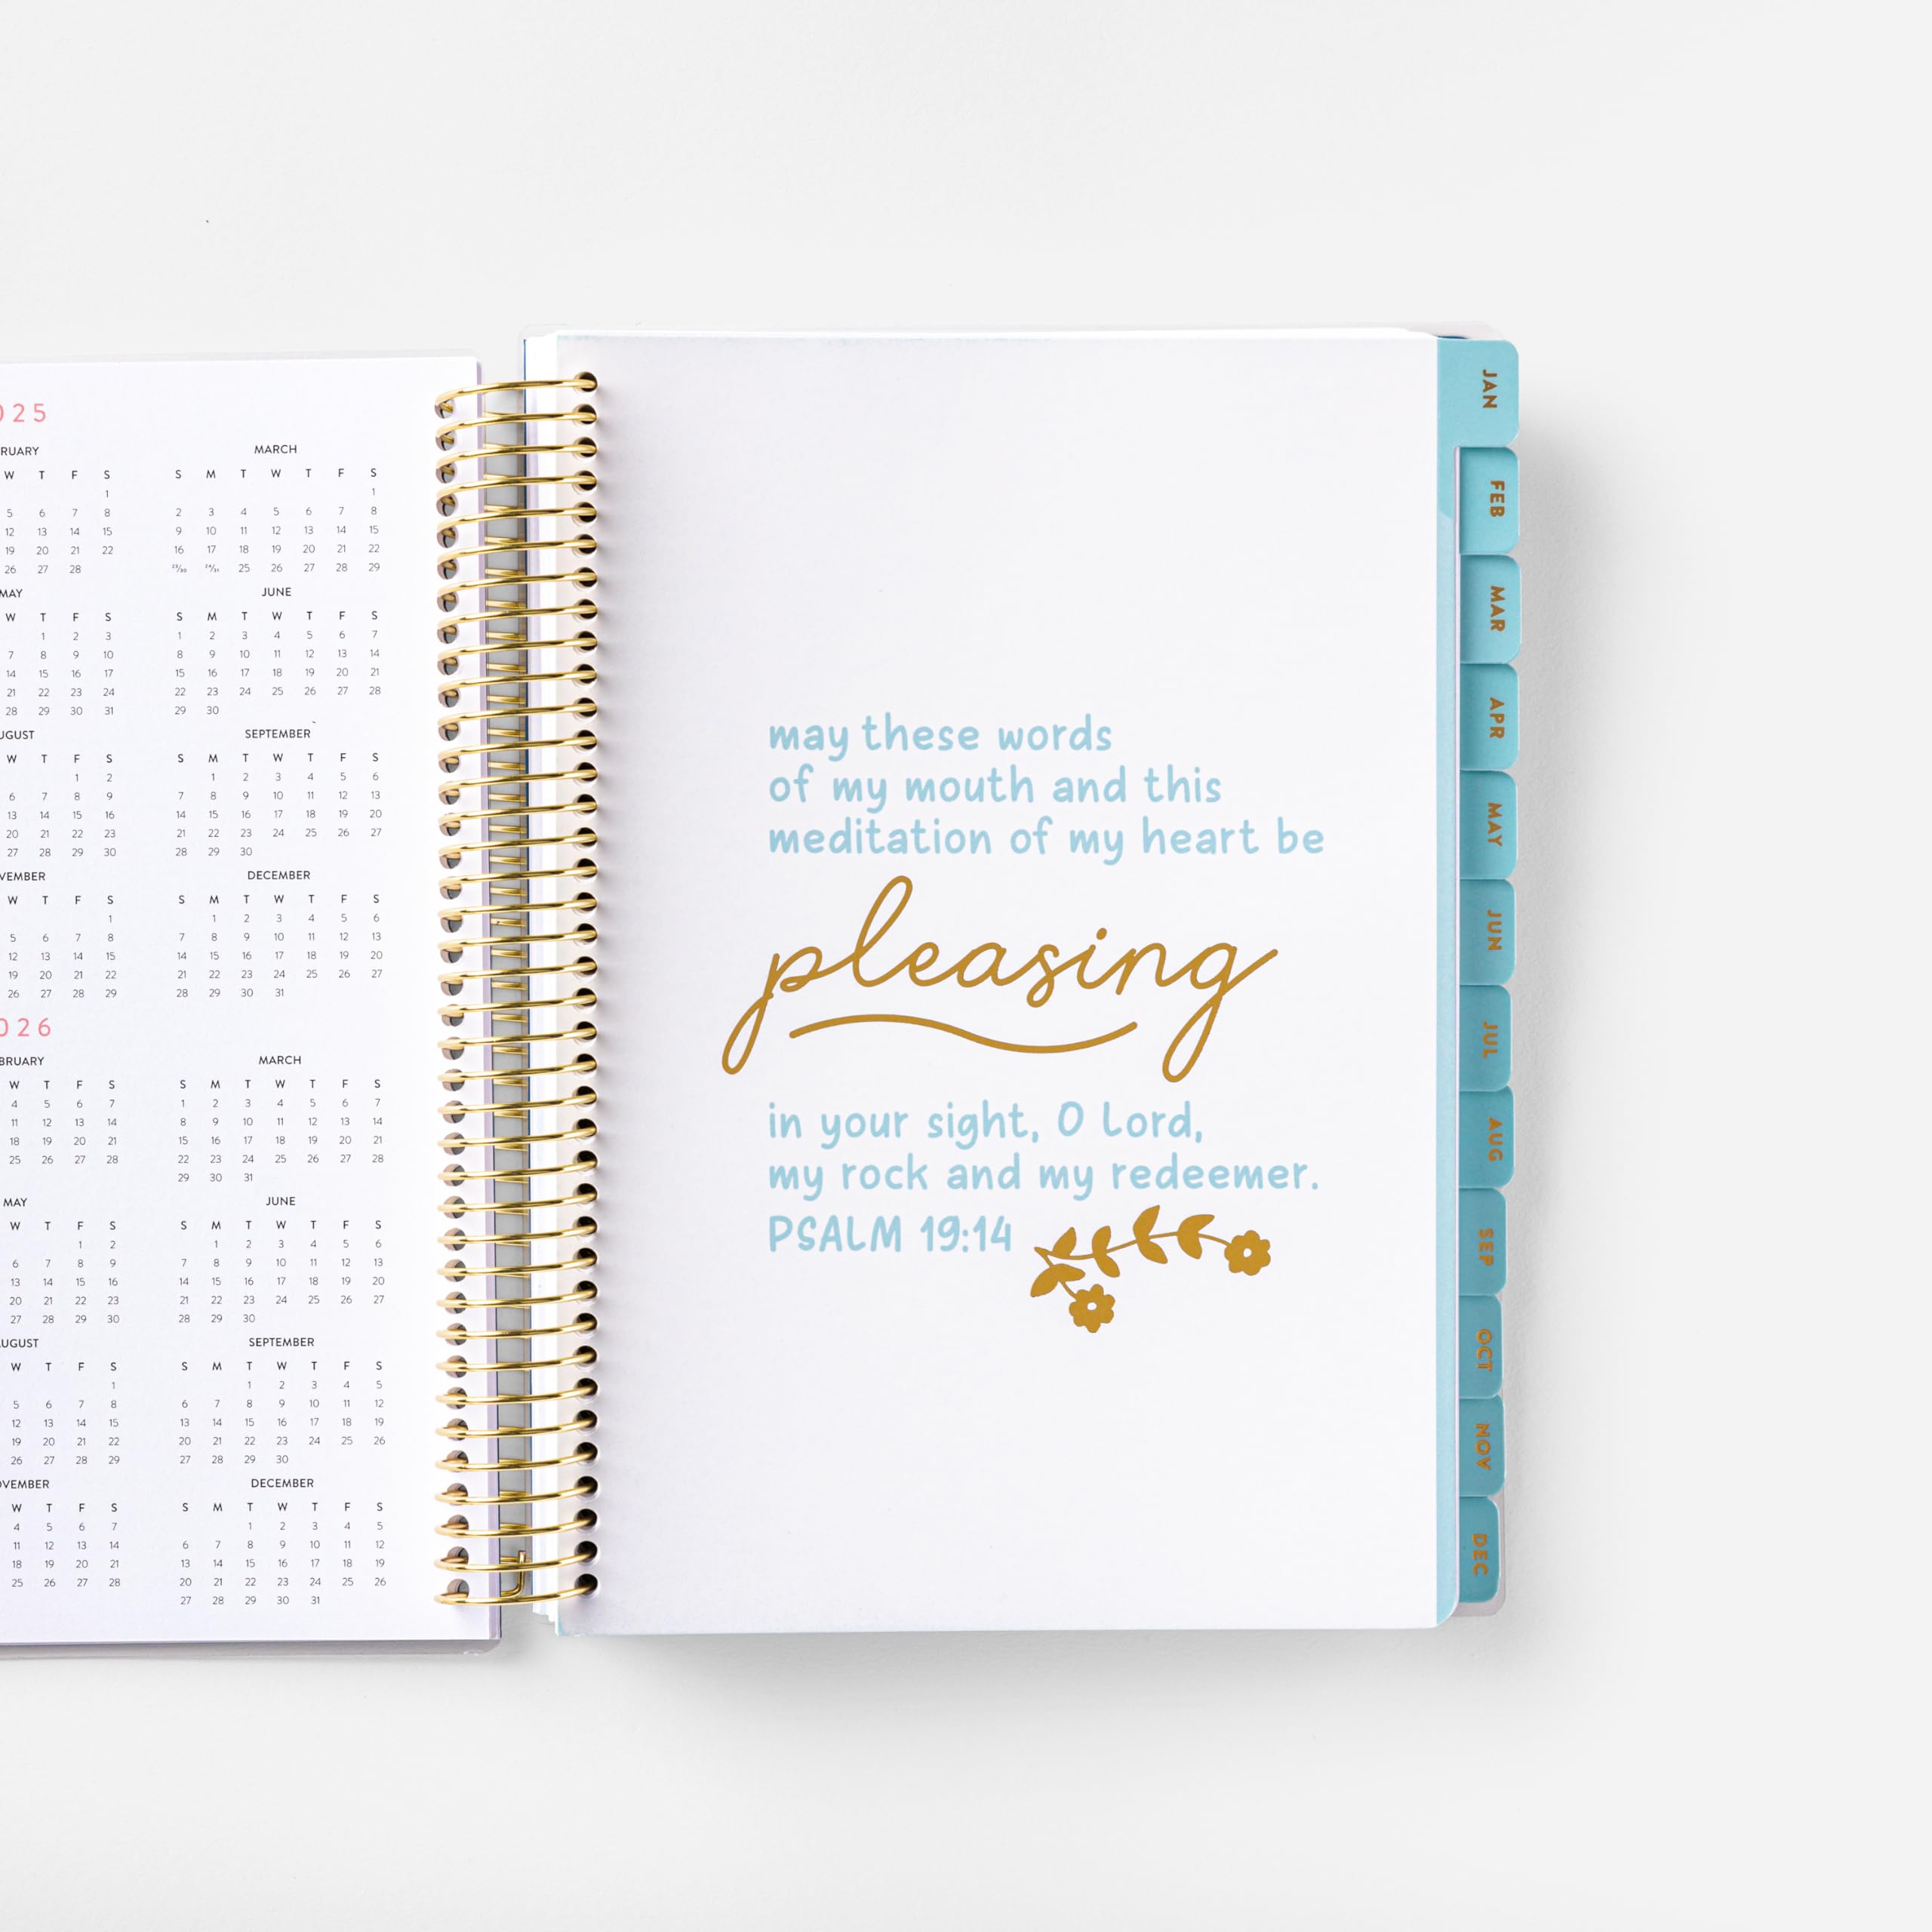 025
RUARY
W T F S
1
5 6 7 8
12 13 14 15
19 20 21 22
26 27 28
MARCH
S M T W T F S
1
2 3 4 5 6 7 8
9 10 11 12 13 14 15
16 17 18 19 20 21 22
23/30 24/31 25 26 27 28 29
MAY
W T F S
1 2 3
7 8 9 10
14 15 16 17
21 22 23 24
28 29 30 31
JUNE
S M T W T F S
1 2 3 4 5 6 7
8 9 10 11 12 13 14
15 16 17 18 19 20 21
22 23 24 25 26 27 28
29 30
UGUST
W T F S
1 2
6 7 8 9
13 14 15 16
20 21 22 23
27 28 29 30
SEPTEMBER
S M T W T F S
1 2 3 4 5 6
7 8 9 10 11 12 13
14 15 16 17 18 19 20
21 22 23 24 25 26 27
28 29 30
VEMBER
W T F S
1
5 6 7 8
12 13 14 15
19 20 21 22
26 27 28 29
DECEMBER
S M T W T F S
1 2 3 4 5 6
7 8 9 10 11 12 13
14 15 16 17 18 19 20
21 22 23 24 25 26 27
28 29 30 31
026
BRUARY
W T F S
4 5 6 7
11 12 13 14
18 19 20 21
25 26 27 28
MARCH
S M T W T F S
1 2 3 4 5 6 7
8 9 10 11 12 13 14
15 16 17 18 19 20 21
22 23 24 25 26 27 28
29 30 31
MAY
W T F S
1 2
6 7 8 9
13 14 15 16
20 21 22 23
27 28 29 30
JUNE
S M T W T F S
1 2 3 4 5 6
7 8 9 10 11 12 13
14 15 16 17 18 19 20
21 22 23 24 25 26 27
28 29 30
UGUST
W T F S
1
5 6 7 8
12 13 14 15
19 20 21 22
26 27 28 29
SEPTEMBER
S M T W T F S
1 2 3 4 5
6 7 8 9 10 11 12
13 14 15 16 17 18 19
20 21 22 23 24 25 26
27 28 29 30
OVEMBER
W T F S
4 5 6 7
11 12 13 14
18 19 20 21
25 26 27 28
DECEMBER
S M T W T F S
1 2 3 4 5
6 7 8 9 10 11 12
13 14 15 16 17 18 19
20 21 22 23 24 25 26
27 28 29 30 31
may these words
of my mouth and this
meditation of my heart be
pleasing
in your sight, O Lord,
my rock and my redeemer.
PSALM 19:14
JAN
FEB
MAR
APR
MAY
JUN
JUL
AUG
SEP
OCT
NOV
DEC